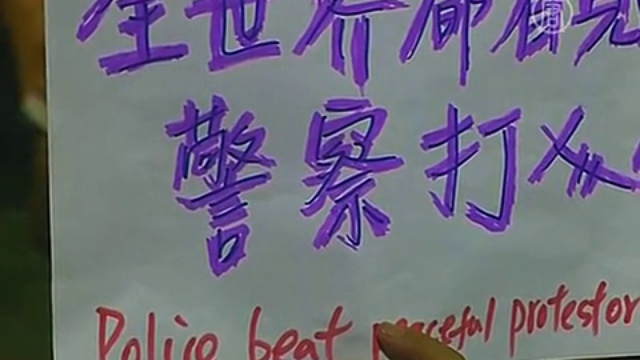 全世界都看見
警察打人
Police beat peaceful protestor